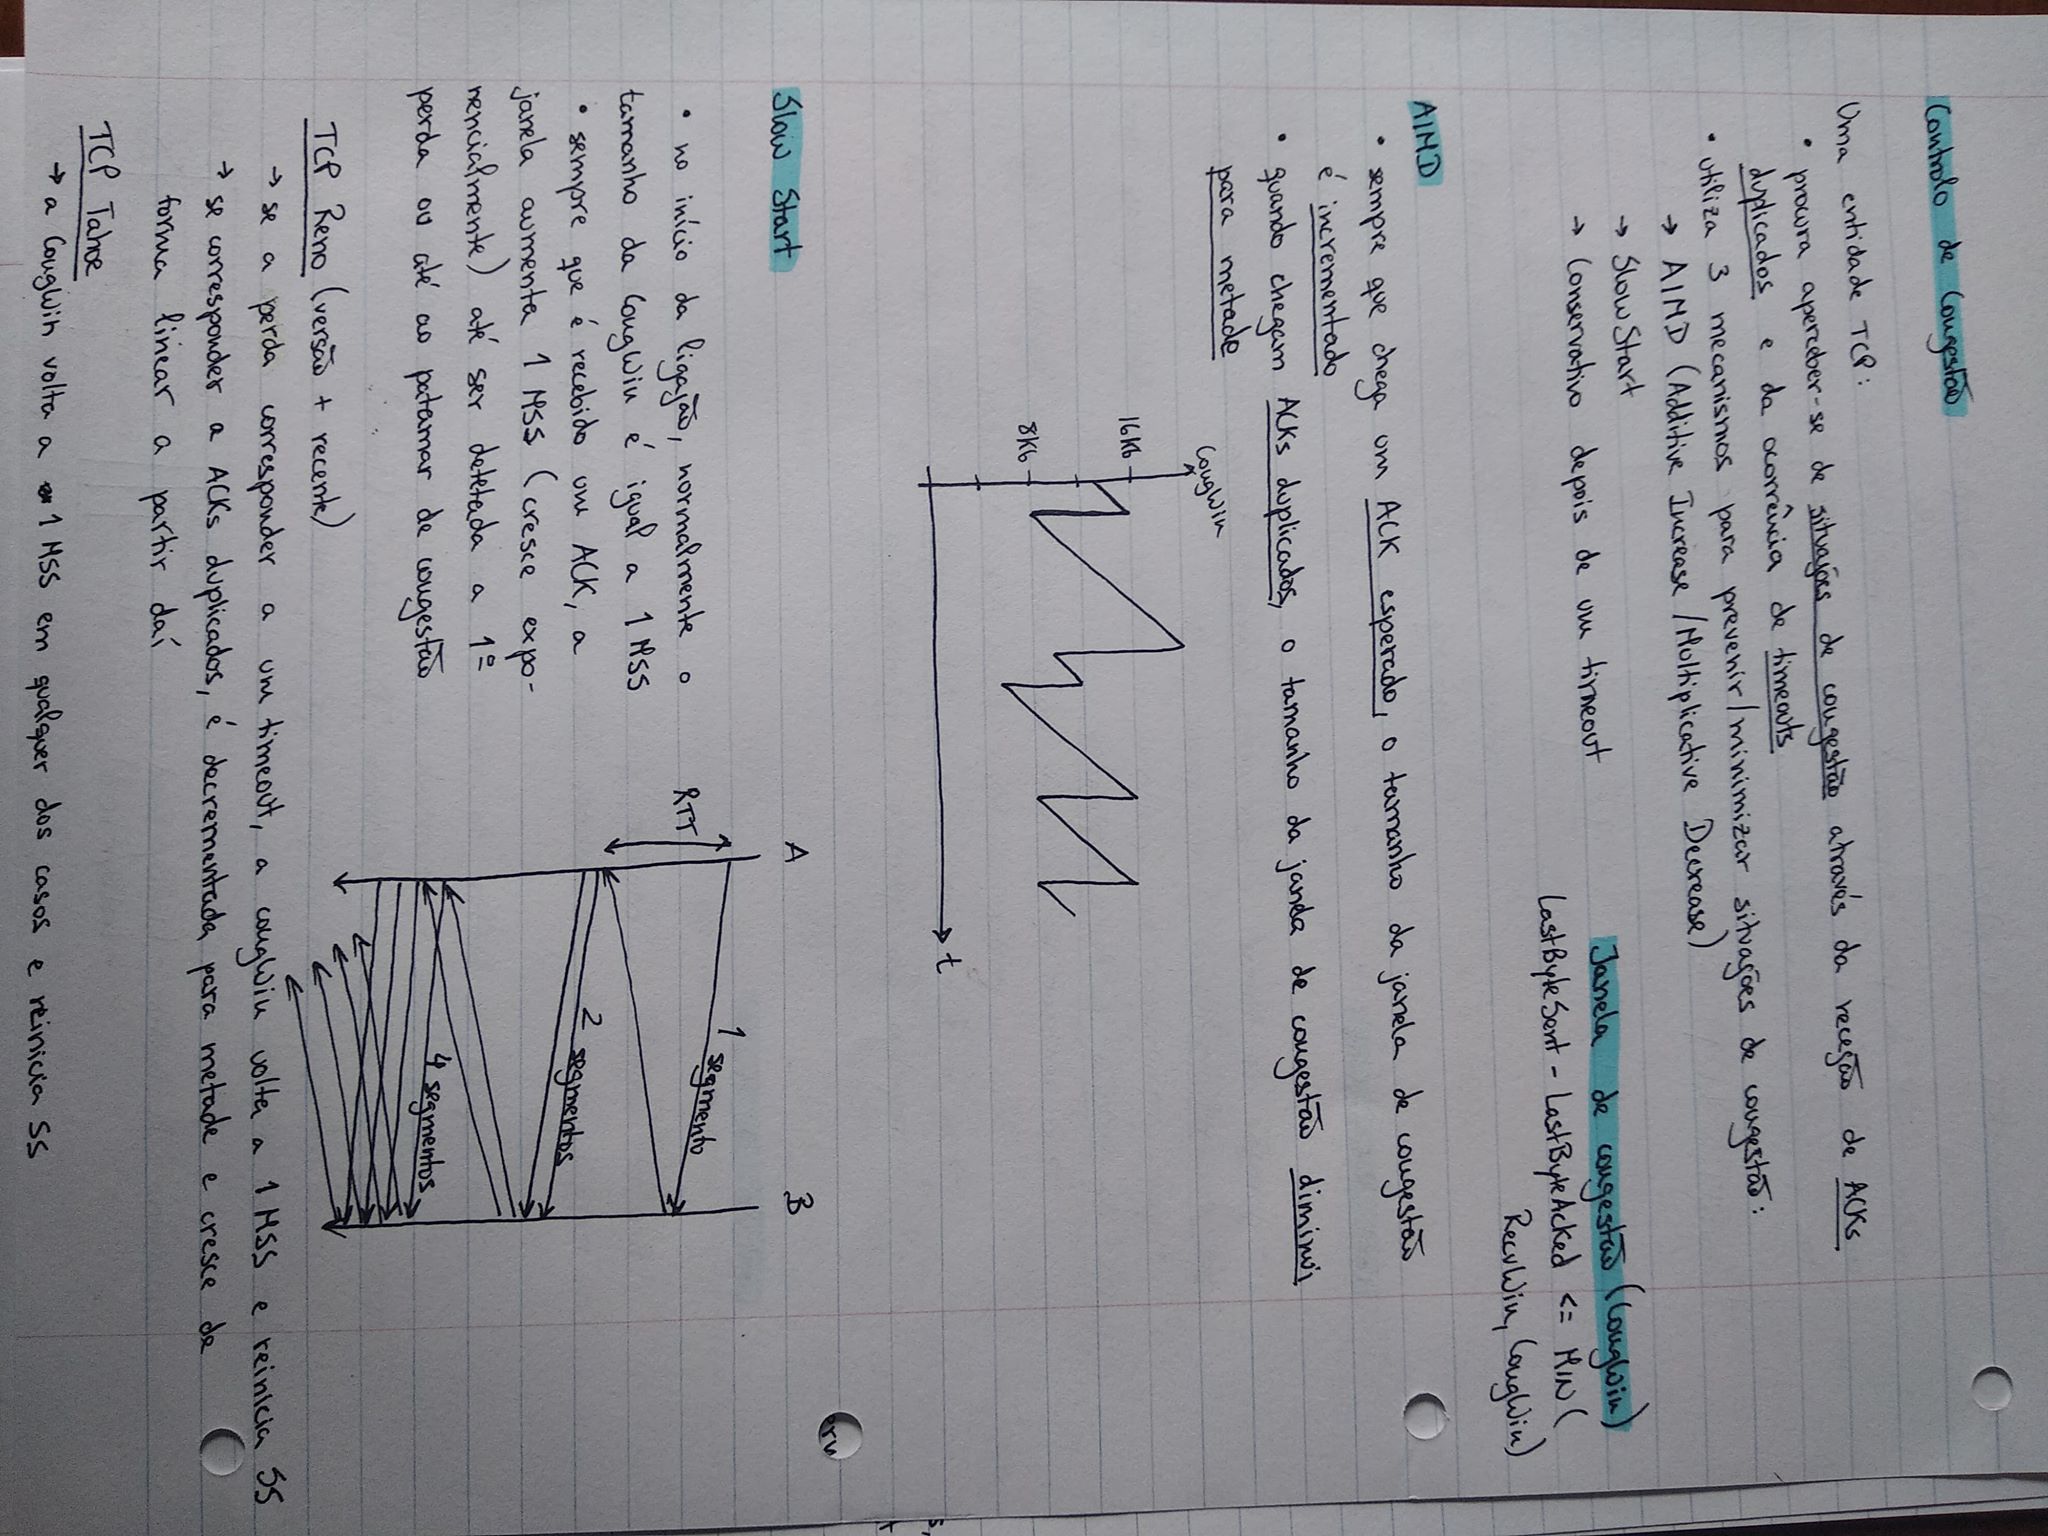 Controlo de Congestão
Uma entidade TCP:
• procura aperceber-se de situações de congestão através da receção de ACKs
duplicados e da ocorrência de timeouts
• utiliza 3 mecanismos para prevenir/minimizar situações de congestão:
→ AIMD (Additive Increase / Multiplicative Decrease)
→ Slow Start
→ Conservativo depois de um timeout
Janela de congestão (CongWin)
LastByteSent - LastByteAcked <= MIN(
RecvWin, CongWin)
AIMD
• sempre que chega um ACK esperado, o tamanho da janela de congestão
é incrementado
• quando chegam ACKs duplicados, o tamanho da janela de congestão diminui
para metade
CongWin
16Kb
8Kb
t
Slow Start
• no início da ligação, normalmente o
tamanho da CongWin é igual a 1 MSS
• sempre que é recebido um ACK, a
janela aumenta 1 MSS (cresce expo-
nencialmente) até ser detetada a 1ª
perda ou até ao patamar de congestão
A B
1 segmento
RTT
2 segmentos
4 segmentos
TCP Reno (versão + recente)
→ se a perda corresponder a um timeout, a congWin volta a 1 MSS e reinicia SS
→ se corresponder a ACKs duplicados, é decrementada para metade e cresce de
forma linear a partir daí
TCP Tahoe
→ a CongWin volta a 1 MSS em qualquer dos casos e reinicia SS